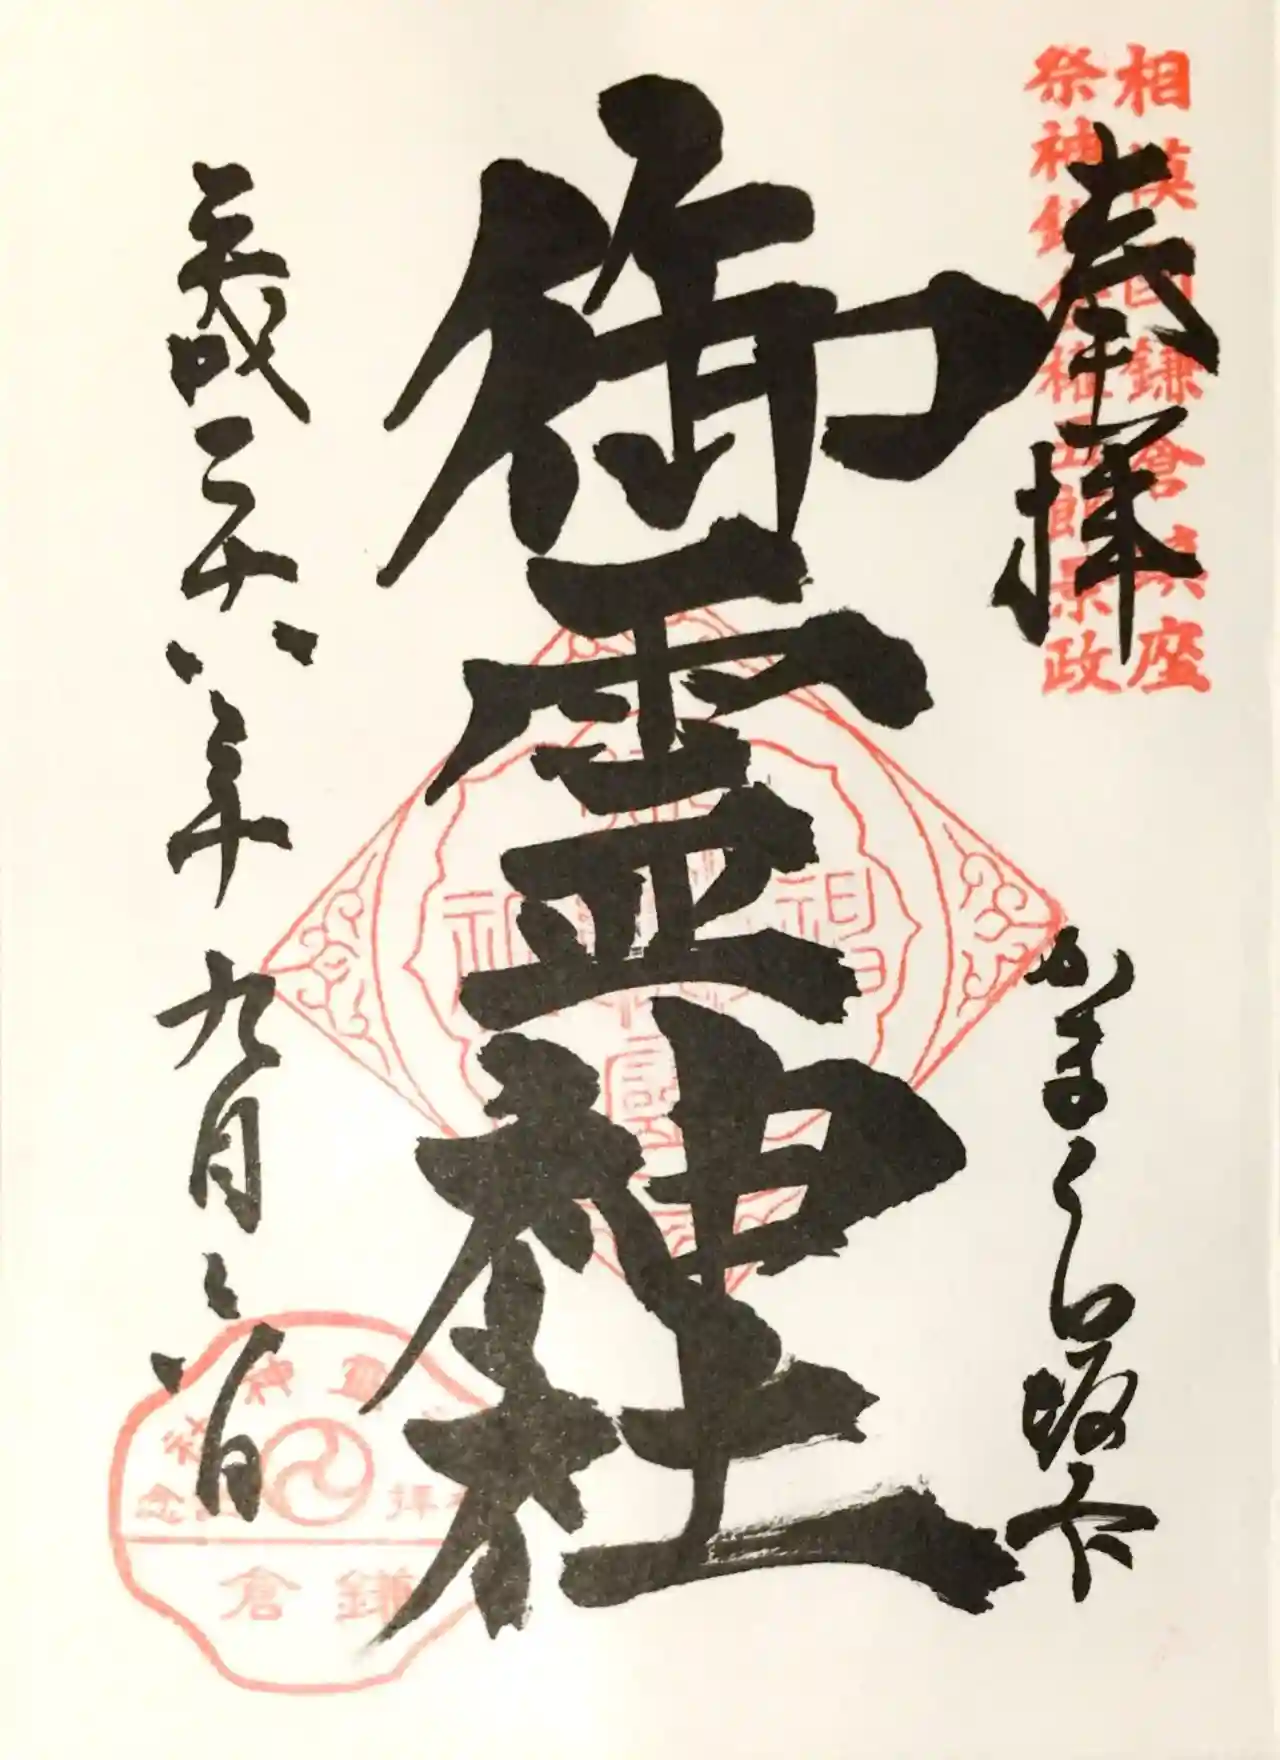 相模国鎌倉鎮座
祭神鎌倉権五郎景政
奉拝
かまくら坂下
御霊神社
平成二十八年九月日
霊神社
拝記念
鎌倉